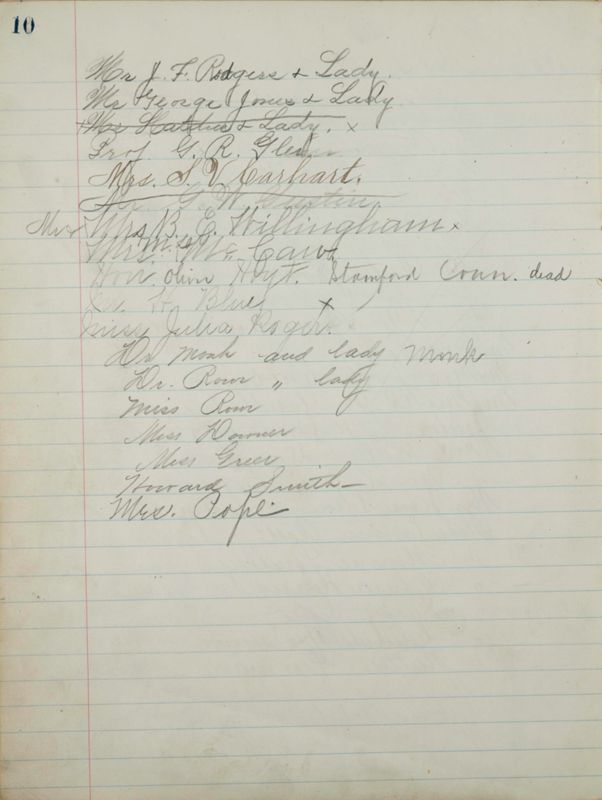 10
Mr J. F. Rodgers & Lady.
Mr George Jones & Lady
& Lady. x
Prof G. R. Glenn
Mrs. S. V. Carhart.
G. W. Dustin
Mrs B. E. Willingham. x
Mc Caw
Hon Oliver Hoyt. Stamford Conn. dead
Blue x
Miss Julia Rogers.
Dr Monk and lady Monk
Dr. Rowe " lady
Miss Rowe
Miss Downer
Miss Greer
Howard Smith
Mrs. Pope